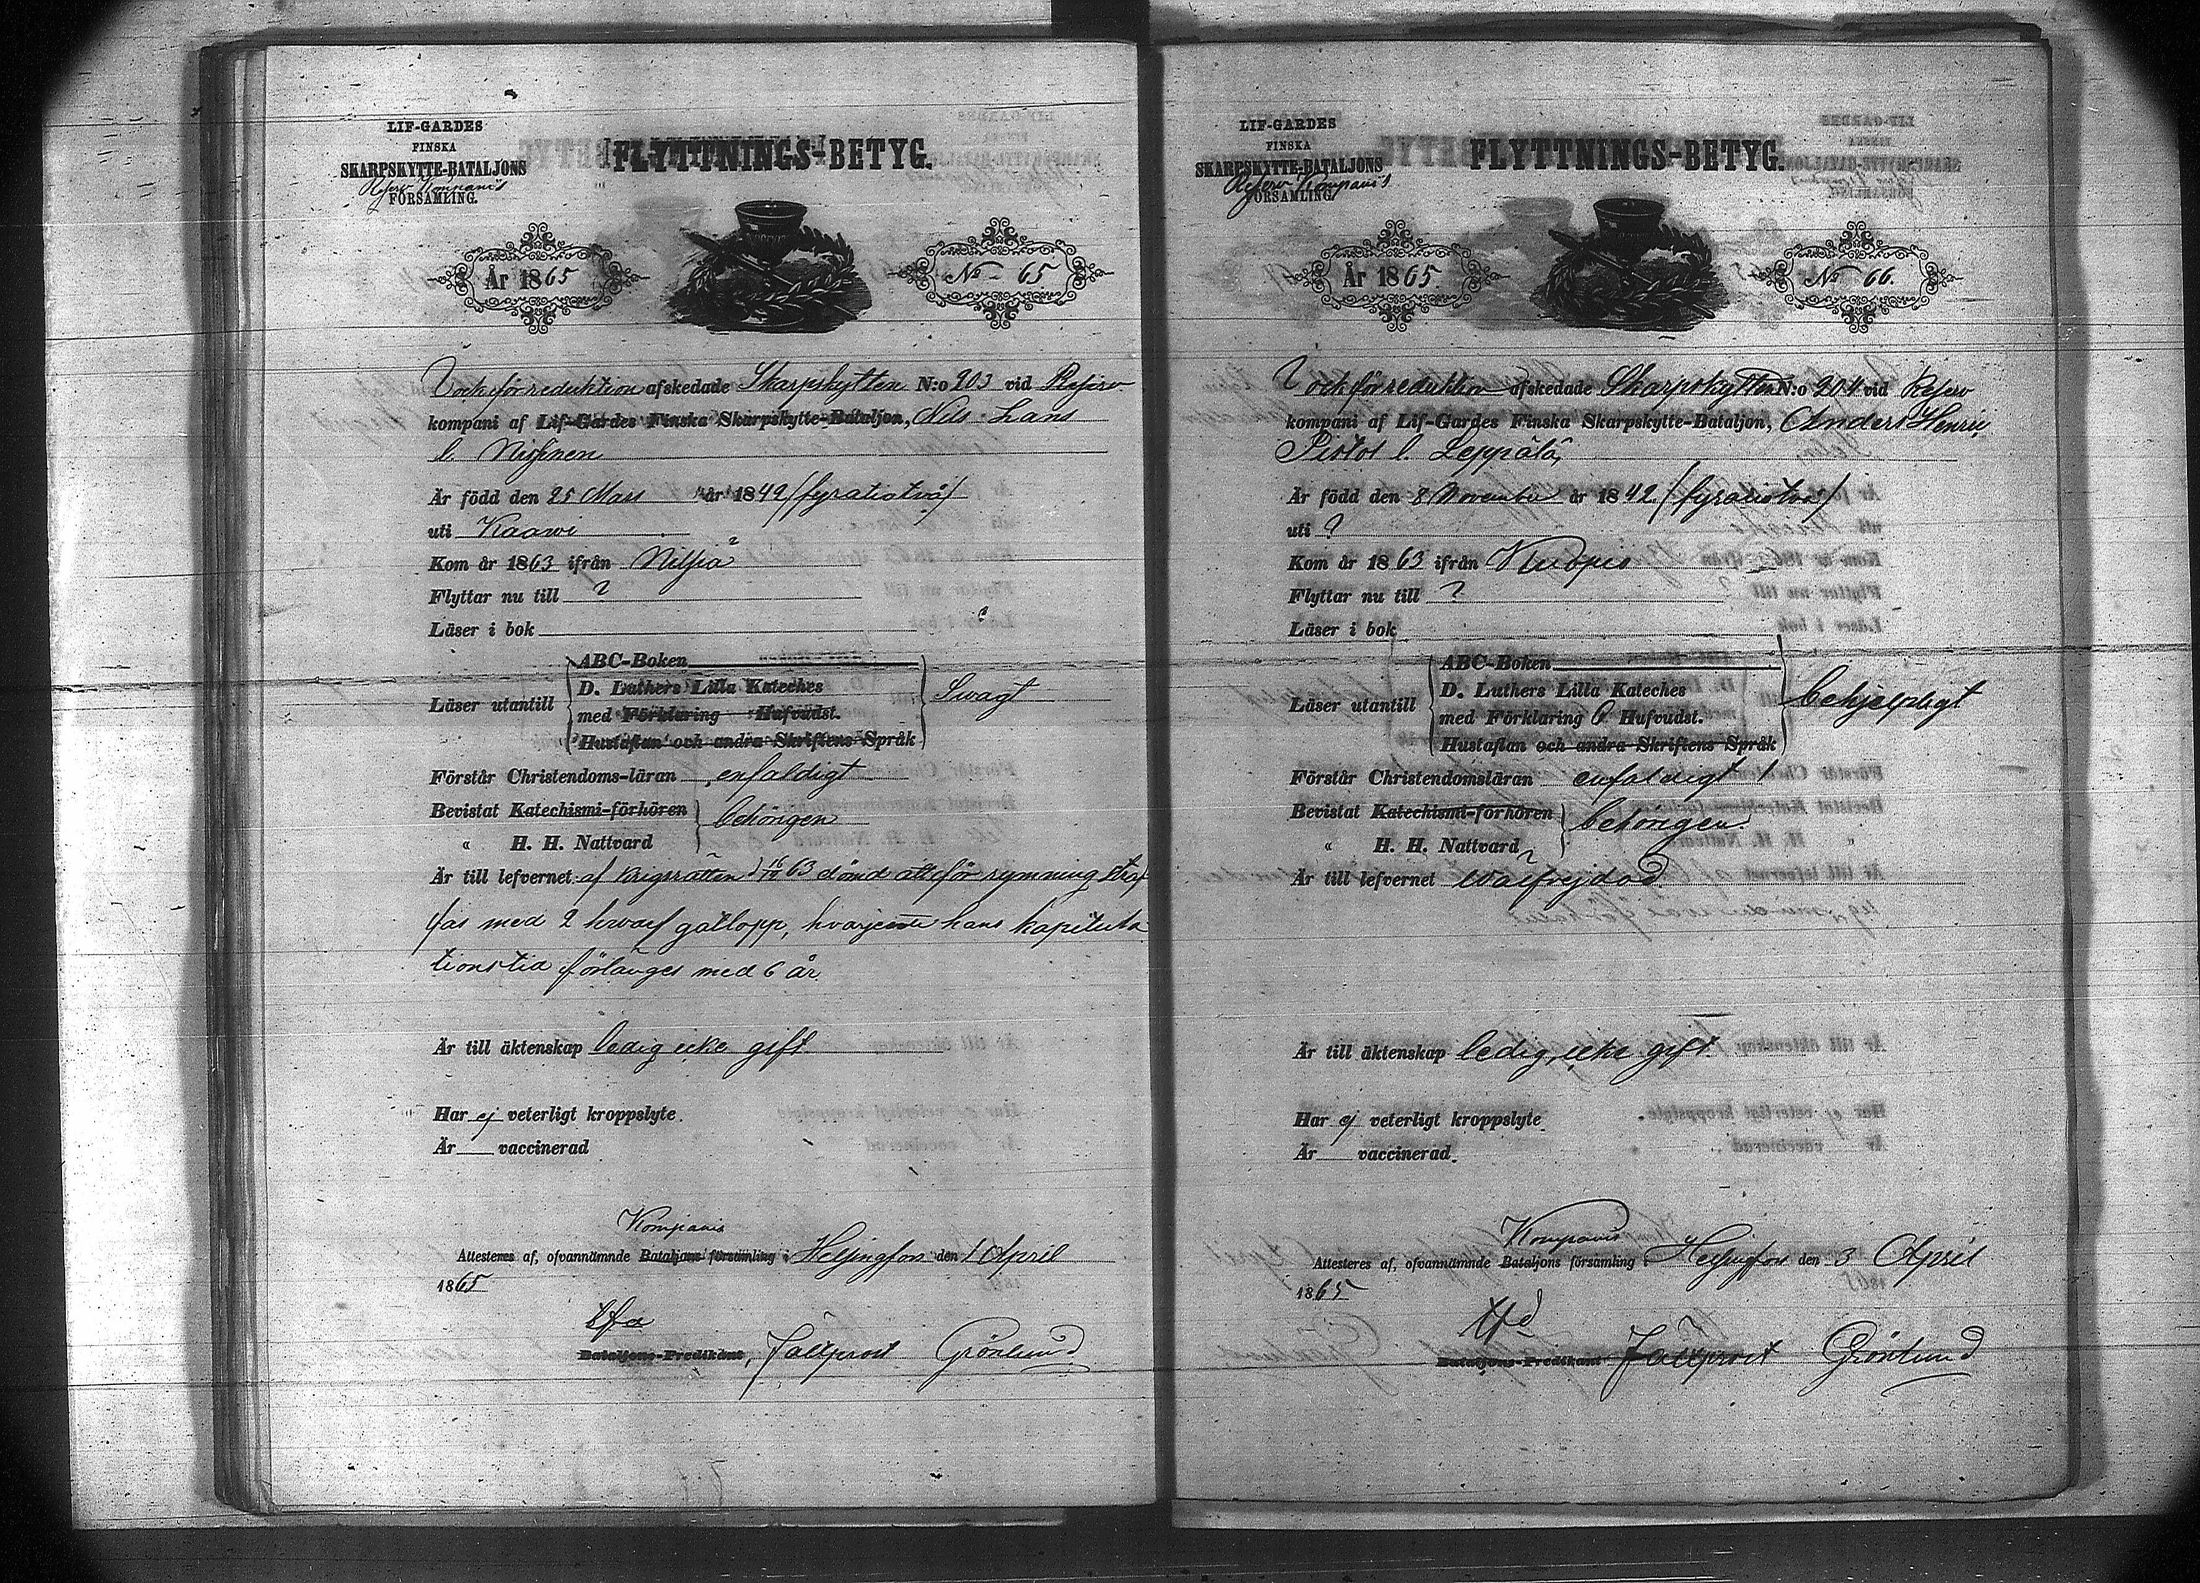 LIF-GARDES
FINSKA
SKARPSKYTTE-BATALJONS
Reserv Kompani's
FÖRSAMLING.
FLYTTNINGS-BETYG.
År 1865
No 65
förreduktion afskedade Skarpskytten N:o 203 vid Reserv
kompani af Lif-Gardes Finska Skarpskytte-Bataljon, Nils Lans
l. Nissinen
Är född den 25 Mars år 1842 (fyratiotvå)
uti Kaawi
Kom år 1863 ifrån Nilsiä
Flyttar nu till ?
Läser i bok
Läser utantill
ABC-Boken
D. Luthers Lilla Kateches
med Förklaring Hufvudst.
Hustaflan och andra Skriftens Språk
Swagt
Förstår Christendoms-läran enfaldigt
Bevistat Katechismi-förhören
" H. H. Nattvard
behörigen
Är till lefvernet af krigsrätten 63 dömd att för rymning straf
fas med 2 hwarf gatlopp, hvarjemte hans kapitula
tionstid förlänges med 6 år
Är till äktenskap ledig icke gift
Har ej veterligt kroppslyte.
Är vaccinerad
Kompanis
Attesteres af, ofvannämnde Bataljons församling i Helsingfors den 1 April
1865
Bataljons-Predikant, Fältprost Grönlund
LIF-GARDES
FINSKA
SKARPSKYTTE-BATALJONS
Reserv Kompani's
FÖRSAMLING.
FLYTTNINGS-BETYG.
År 1865.
No 66.
förreduktion afskedade Skarpskytten N:o 204 vid Reserv
kompani af Lif-Gardes Finska Skarpskytte-Bataljon, Anders Henric
Pistol l. Leppälä,
Är född den 8 November år 1842 (fyratiotvå)
uti ?
Kom år 1863 ifrån Kuopio
Flyttar nu till ?
Läser i bok
Läser utantill
ABC-Boken
D. Luthers Lilla Kateches
med Förklaring Hufvudst.
Hustaflan och andra Skriftens Språk
behjelpligt
Förstår Christendomsläran enfaldigt
Bevistat Katechismi-förhören
" H. H. Nattvard
behörigen.
Är till lefvernet wälfrejdad
Är till äktenskap ledig, icke gift
Har ej veterligt kroppslyte.
Är vaccinerad.
Kompanis
Attesteres af, ofvannämnde Bataljons församling i Helsingfors den 3 April
1865
Bataljons-Predikant Fältprost Grönlund